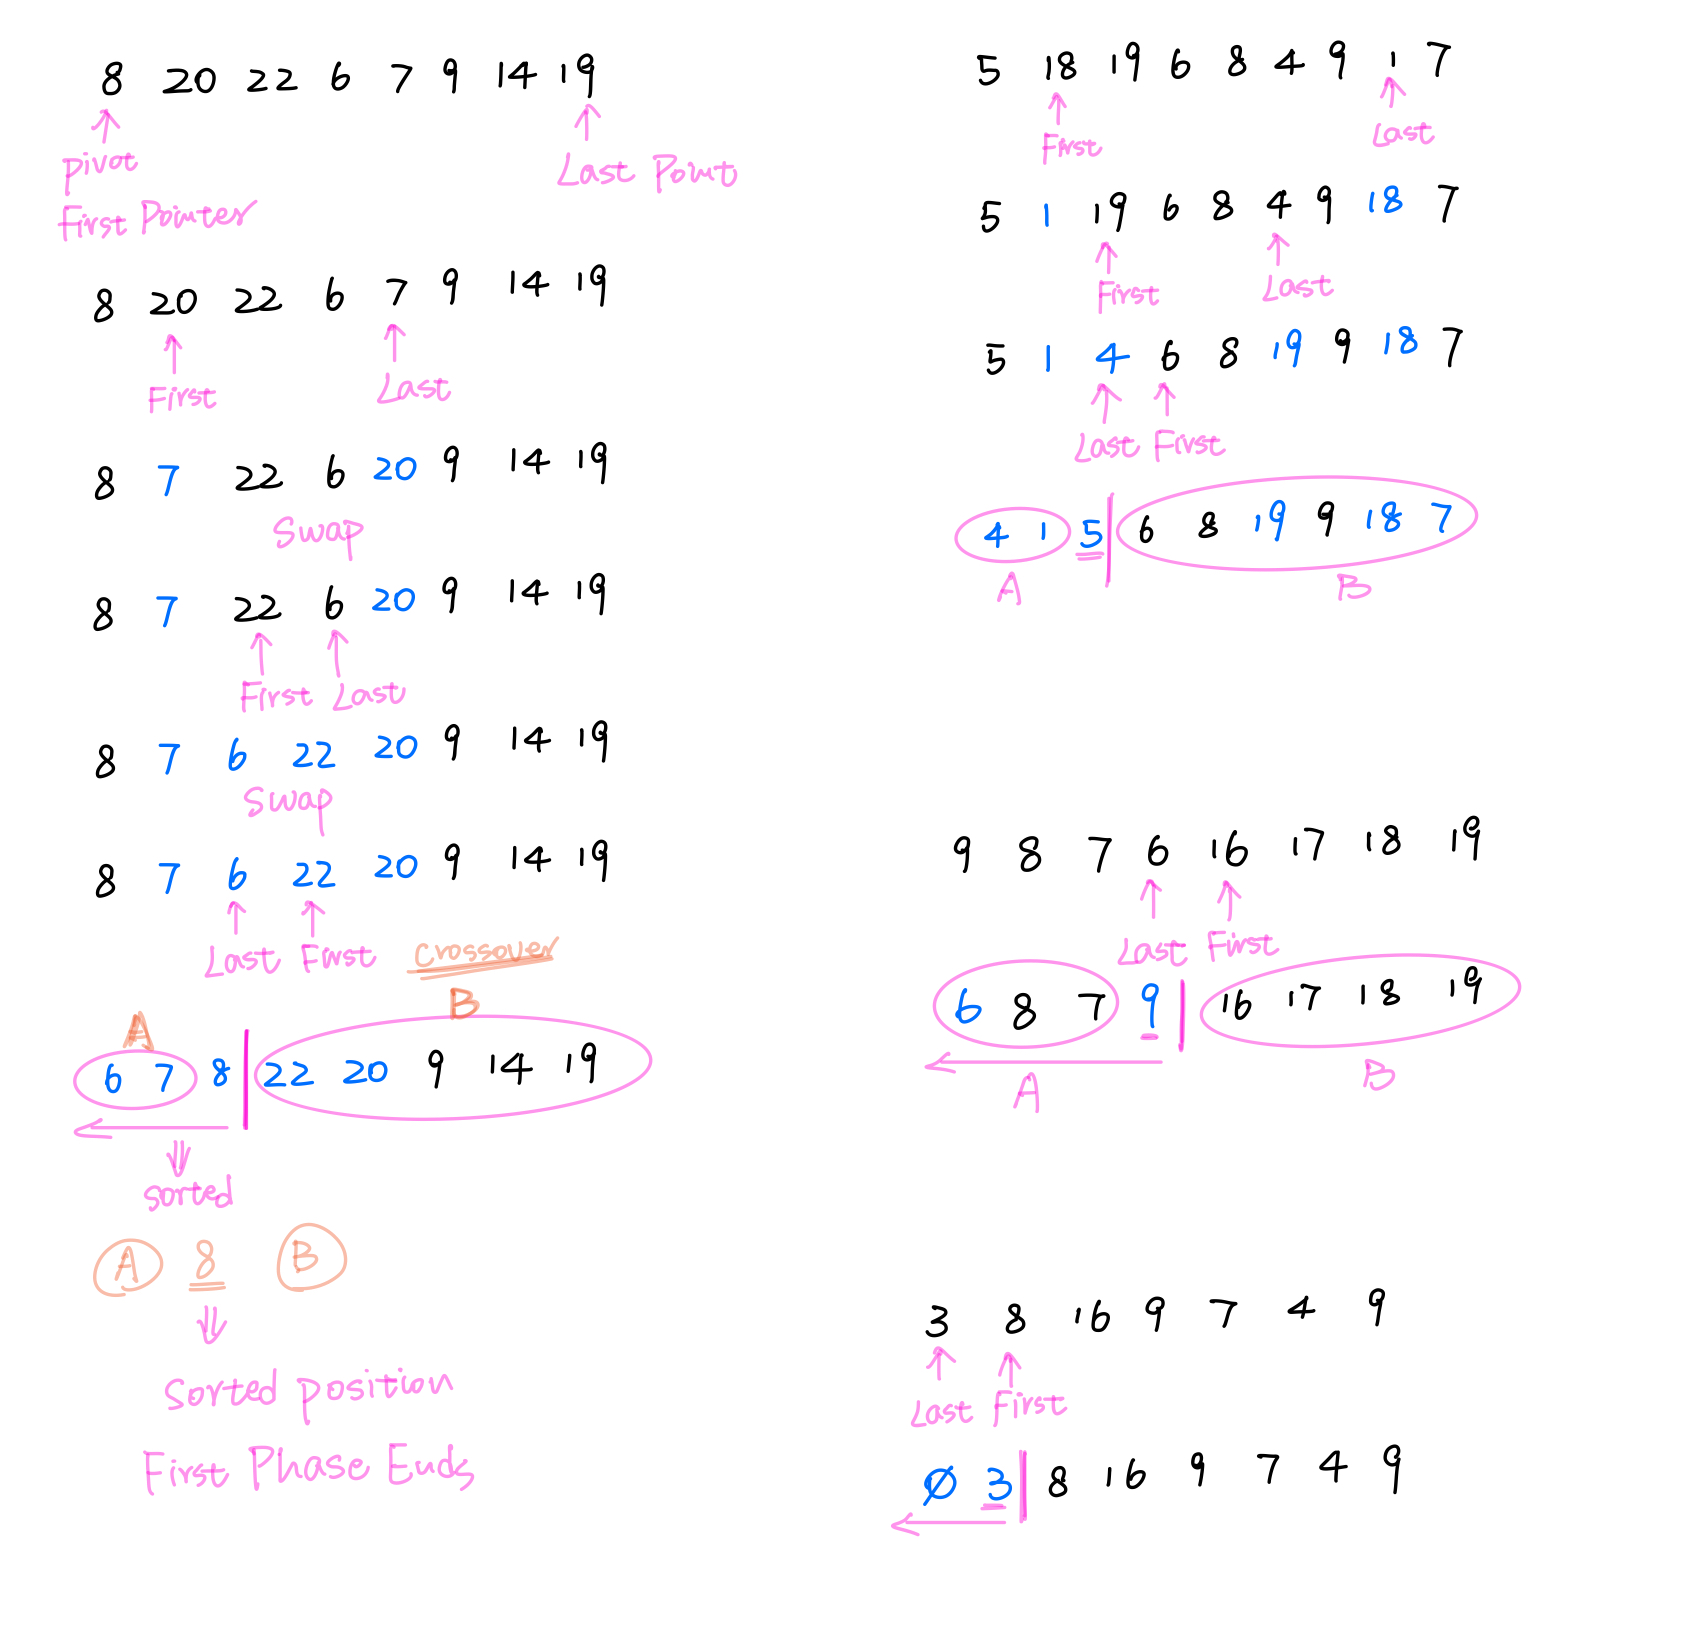 8 20 22 6 7 9 14 19
Pivot
Last Point
First Pointer
8 20 22 6 7 9 14 19
First Last
8 7 22 6 20 9 14 19
Swap
8 7 22 6 20 9 14 19
First Last
8 7 6 22 20 9 14 19
Swap
8 7 6 22 20 9 14 19
Last First
Crossover
A B
6 7 8 | 22 20 9 14 19
sorted
A 8 B
Sorted position
First Phase Ends
5 18 19 6 8 4 9 1 7
First Last
5 1 19 6 8 4 9 18 7
First Last
5 1 4 6 8 19 9 18 7
Last First
4 1 5 | 6 8 19 9 18 7
A B
9 8 7 6 16 17 18 19
Last First
6 8 7 9 | 16 17 18 19
A B
3 8 16 9 7 4 9
Last First
Ø 3 | 8 16 9 7 4 9